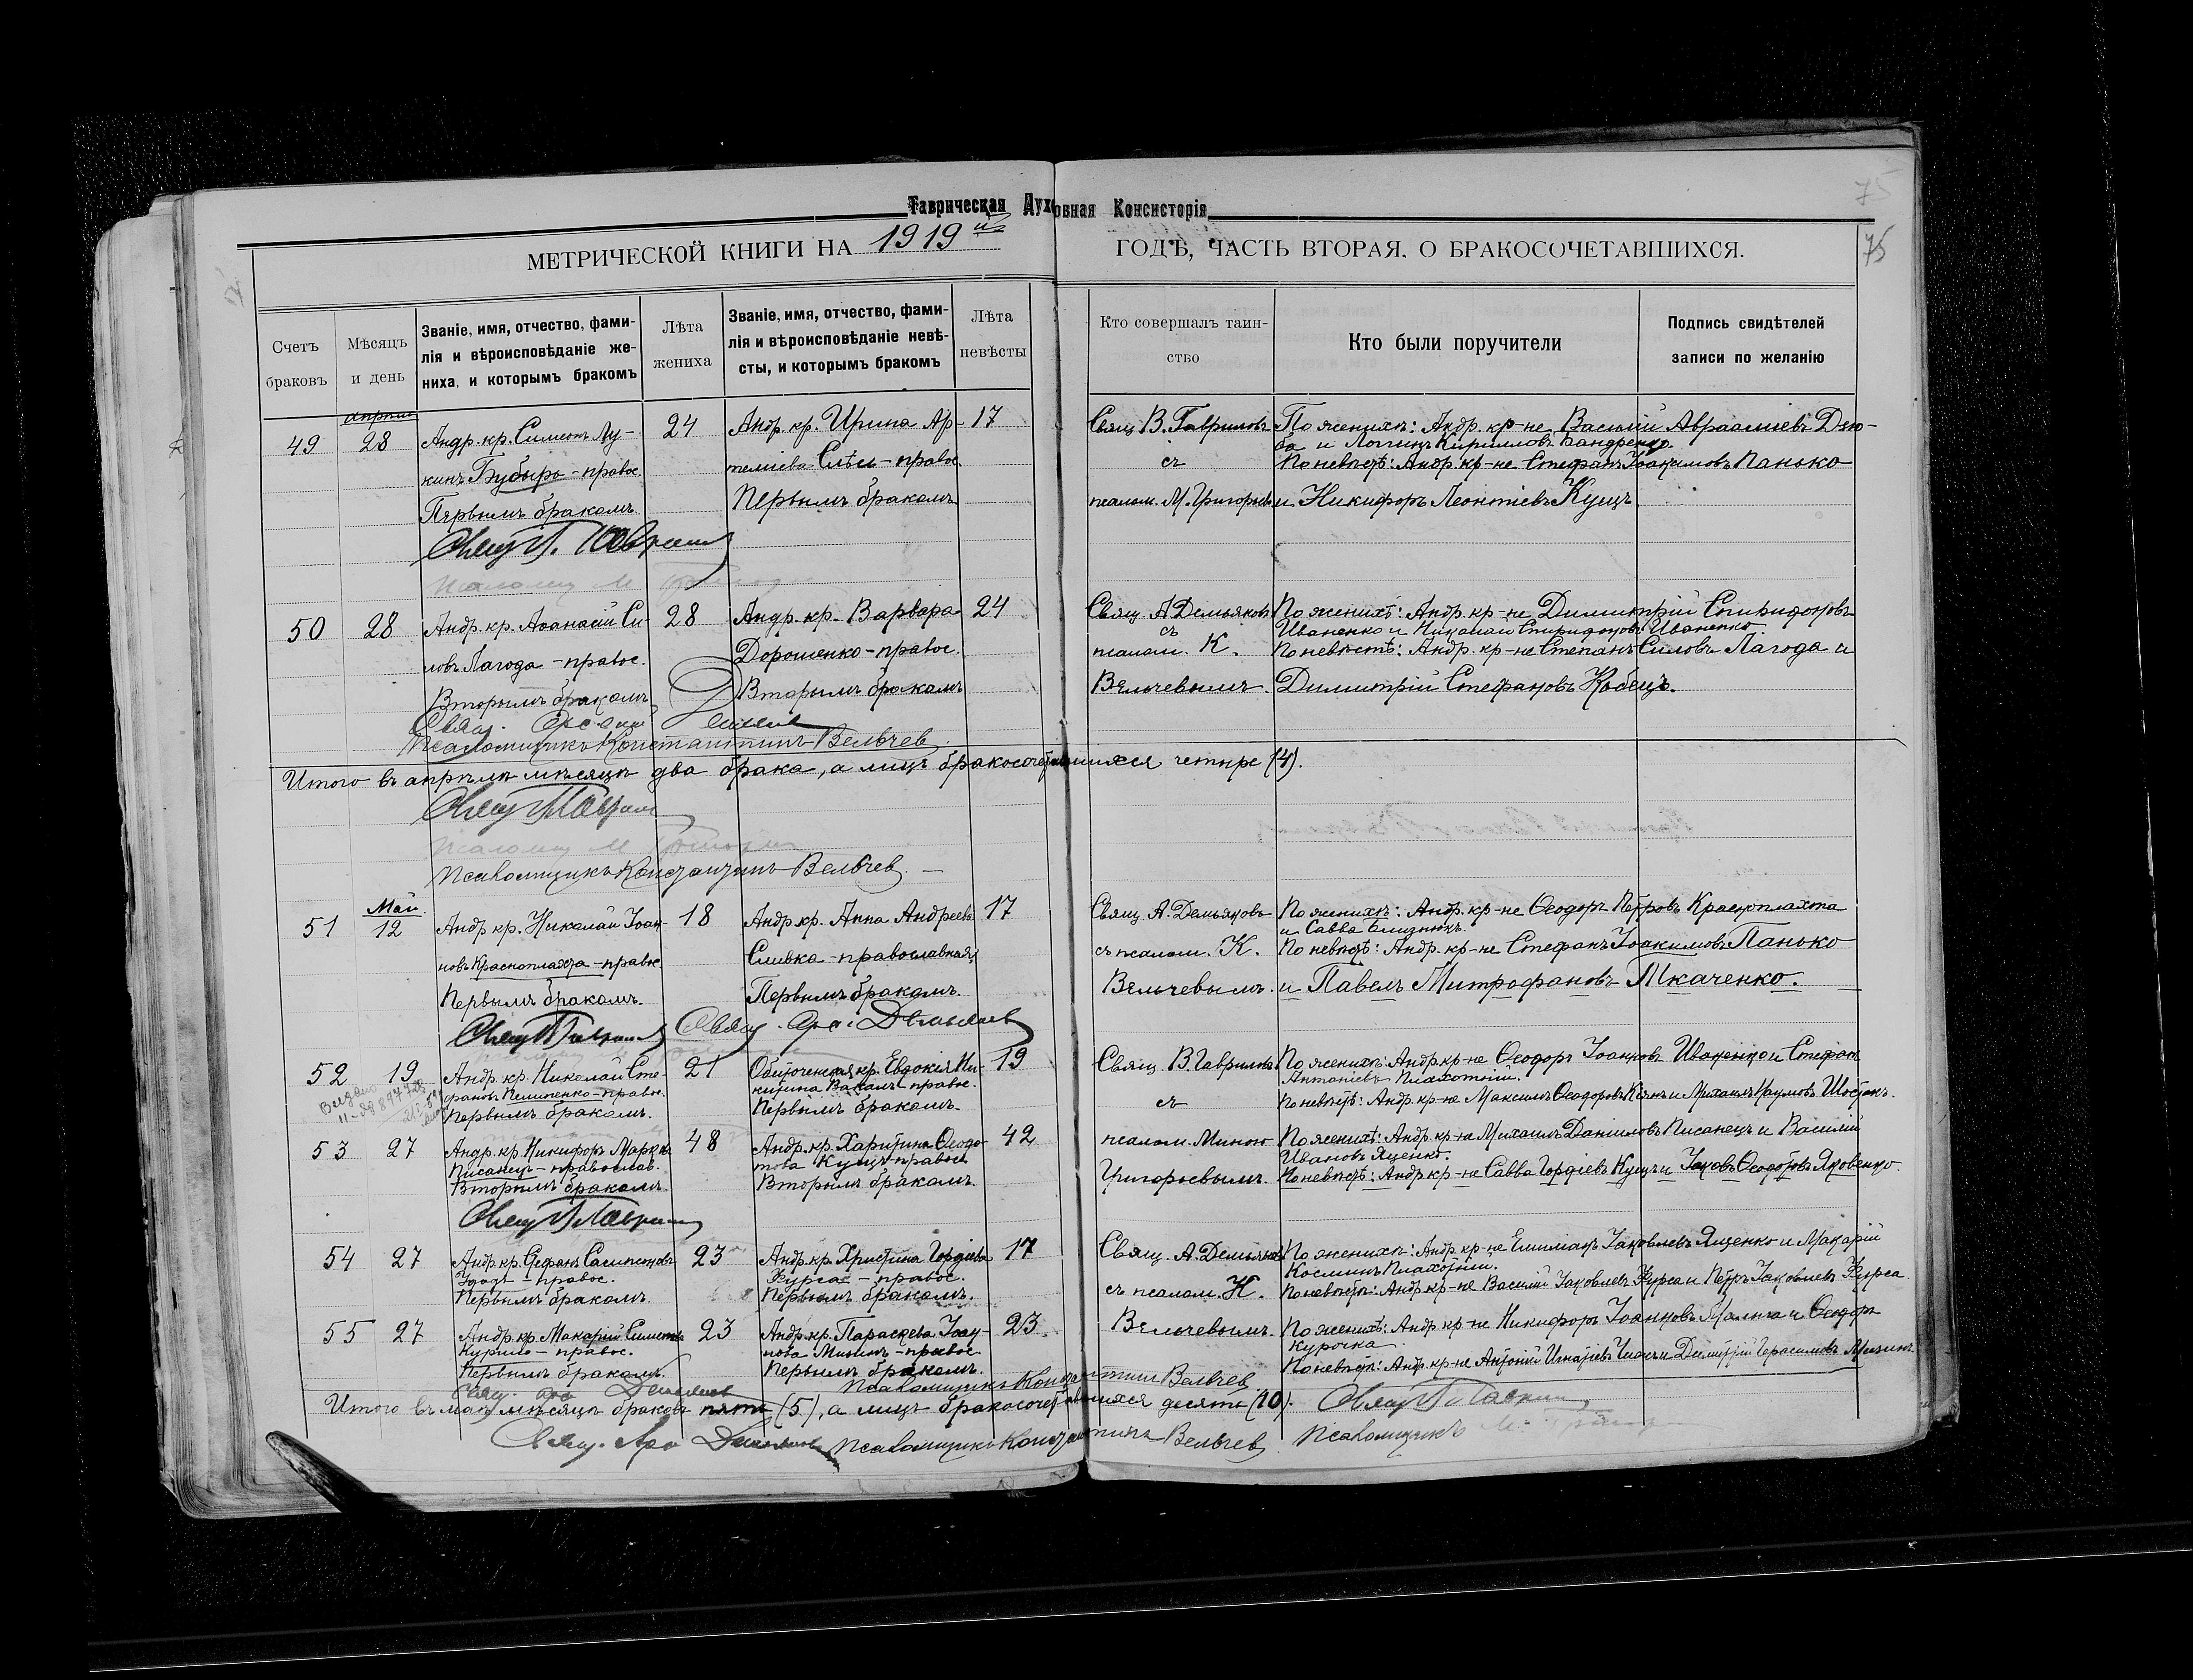 75
Таврическая Духовная Консисторія
МЕТРИЧЕСКОЙ КНИГИ НА 1919й ГОДЪ, ЧАСТЬ ВТОРАЯ, О БРАКОСОЧЕТАВШИХСЯ.
75
Счетъ браковъ
Мѣсяцъ и день
Званіе, имя, отчество, фами-
лія и вѣроисповѣданіе же-
ниха, и которымъ бракомъ
Лѣта
жениха
Званіе, имя, отчество, фами-
лія и вѣроисповѣданіе невѣ-
сты, и которымъ бракомъ
Лѣта
невѣсты
Кто совершалъ таин-
ство
Кто были поручители
Подпись свидѣтелей
записи по желанію
апрѣль
49 28
Андр. кр. Симеонъ Лу-
кинъ Бубырь - правос.
Первымъ бракомъ.
24
Андр. кр. Ирина Ар-
темиева - правос.
Первымъ бракомъ
17
Свящ. В. Гавриловъ
съ
псалом. М. Григорьев
По женихѣ: Андр. кр-не Василий Авраамиевъ Дею-
ба и Логгинъ Кирилловъ Бандренко.
По невѣстѣ: Андр. кр-не Стефанъ Іоакимовъ Панько
и Никифоръ Леонтіевъ Кущъ.
50 28
Андр. кр. Аѳанасій Си-
ловъ Лагода - правос.
Вторымъ бракомъ
28
Андр. кр. Варвара
Дорошенко - правос.
Вторымъ бракомъ
24
Свящ. А. Демьяновъ
съ
псалом. К.
Вельчевымъ.
По женихѣ: Андр. кр-не Димитрій Спиридоновъ
Иваненко и Николай Спиридоновъ Иваненко.
По невѣстѣ: Андр. кр-не Степанъ Силовъ Лагода и
Димитрій Стефановъ Кобецъ.
Псаломщикъ Константинъ Вельчев
Итого въ апрѣлѣ мѣсяцѣ два брака, а лицъ бракосочетавшихся четыре (4).
Псаломщикъ Константинъ Вельчев
Май
51 12
Андр. кр. Николай Іоан-
новъ Красноплахта - правос.
Первымъ бракомъ.
18
Андр. кр. Анна Андреева
Сливка - православная
Первымъ бракомъ.
17
Свящ. А. Демьяновъ
съ псалом. К.
Вельчевымъ.
По женихѣ: Андр. кр-не Ѳеодоръ Петровъ Красноплахта
и Савва Близнюкъ.
По невѣстѣ: Андр. кр-не Стефанъ Іоакимовъ Панько
и Павелъ Митрофановъ Ткаченко.
52 19
Андр. кр. Николай Сте-
фановъ Пелипенко - правос.
Первымъ бракомъ.
21
Обиточенская кр. Евдокія Ни-
китина Вакалъ - правос.
Первымъ бракомъ.
19
Свящ. В. Гавриловъ
съ
По женихѣ: Андр. кр-не Ѳеодоръ Іоанновъ Иваненко и Стефанъ
Антоніевъ Плахотній.
По невѣстѣ: Андр. кр-не Максимъ Ѳеодоровъ Кіянъ и Михаилъ Наумовъ Шостакъ.
53 27
Андр. кр. Никифоръ Марков
Писанецъ - православ.
Вторымъ бракомъ.
48
Андр. кр. Харитина Ѳеодо-
това Кущъ - правос.
Вторымъ бракомъ.
42
псалом. Миною
Григорьевымъ.
По женихѣ: Андр. кр-не Михаилъ Даниловъ Писанецъ и Василій
Ивановъ Яценко.
По невѣстѣ: Андр. кр-не Савва Гордіевъ Кущъ и Іаковъ Ѳеодоровъ Яковенко.
54 27
Андр. кр. Стефанъ
- правос.
Первымъ бракомъ.
23
Андр. кр. Христина Гордіева
Фурса - правос.
Первымъ бракомъ.
17
Свящ. А. Демьяновъ
съ псалом. К.
По женихѣ: Андр. кр-не Емиліанъ Іаковлевъ Ященко и Макарій
Косминъ Плахотній.
По невѣстѣ: Андр. кр-не Василій Іаковлевъ Фурса и Петръ Іаковлевъ Фурса.
55 27
Андр. кр. Макарій
Курило - правос.
Первымъ бракомъ.
23
Андр. кр. Параскева Іоан-
нова Мизинъ - правос.
Первымъ бракомъ.
23.
Вельчевымъ.
По женихѣ: Андр. кр-не Никифоръ Іоанновъ Малына и Ѳеодоръ
Курочка
По невѣстѣ: Андр. кр-не Антоній Игнатіевъ и Димитрій Герасимовъ Мизинъ.
Псаломщикъ Константинъ Вельчев
Итого въ маѣ мѣсяцѣ браковъ пять (5), а лицъ бракосочетавшихся десять (10).
Псаломщикъ Константинъ Вельчев
Псаломщикъ